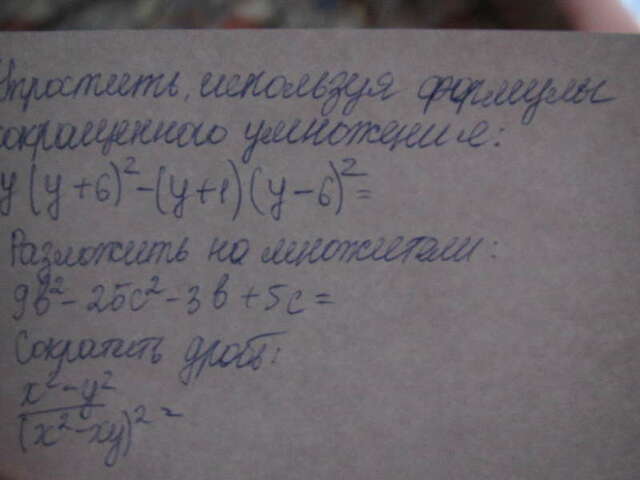 Упростить, используя формулы
сокращенного умножения:
y(y+6)²-(y+1)(y-6)²=
Разложить на множители:
9b²-25c²-3b+5c=
Сократить дробь:
x²-y²
(x²-xy)² =